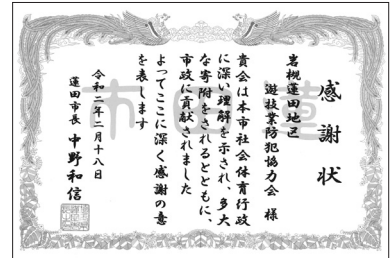 感謝状
岩槻蓮田地区
遊技業防犯協力会 様
貴会は本市社会体育行政
に深い理解を示され、多大
な寄附をされるとともに、
市政に貢献されました
よってここに深く感謝の意
を表します
令和二年二月十八日
蓮田市長 中野和信
蓮田市